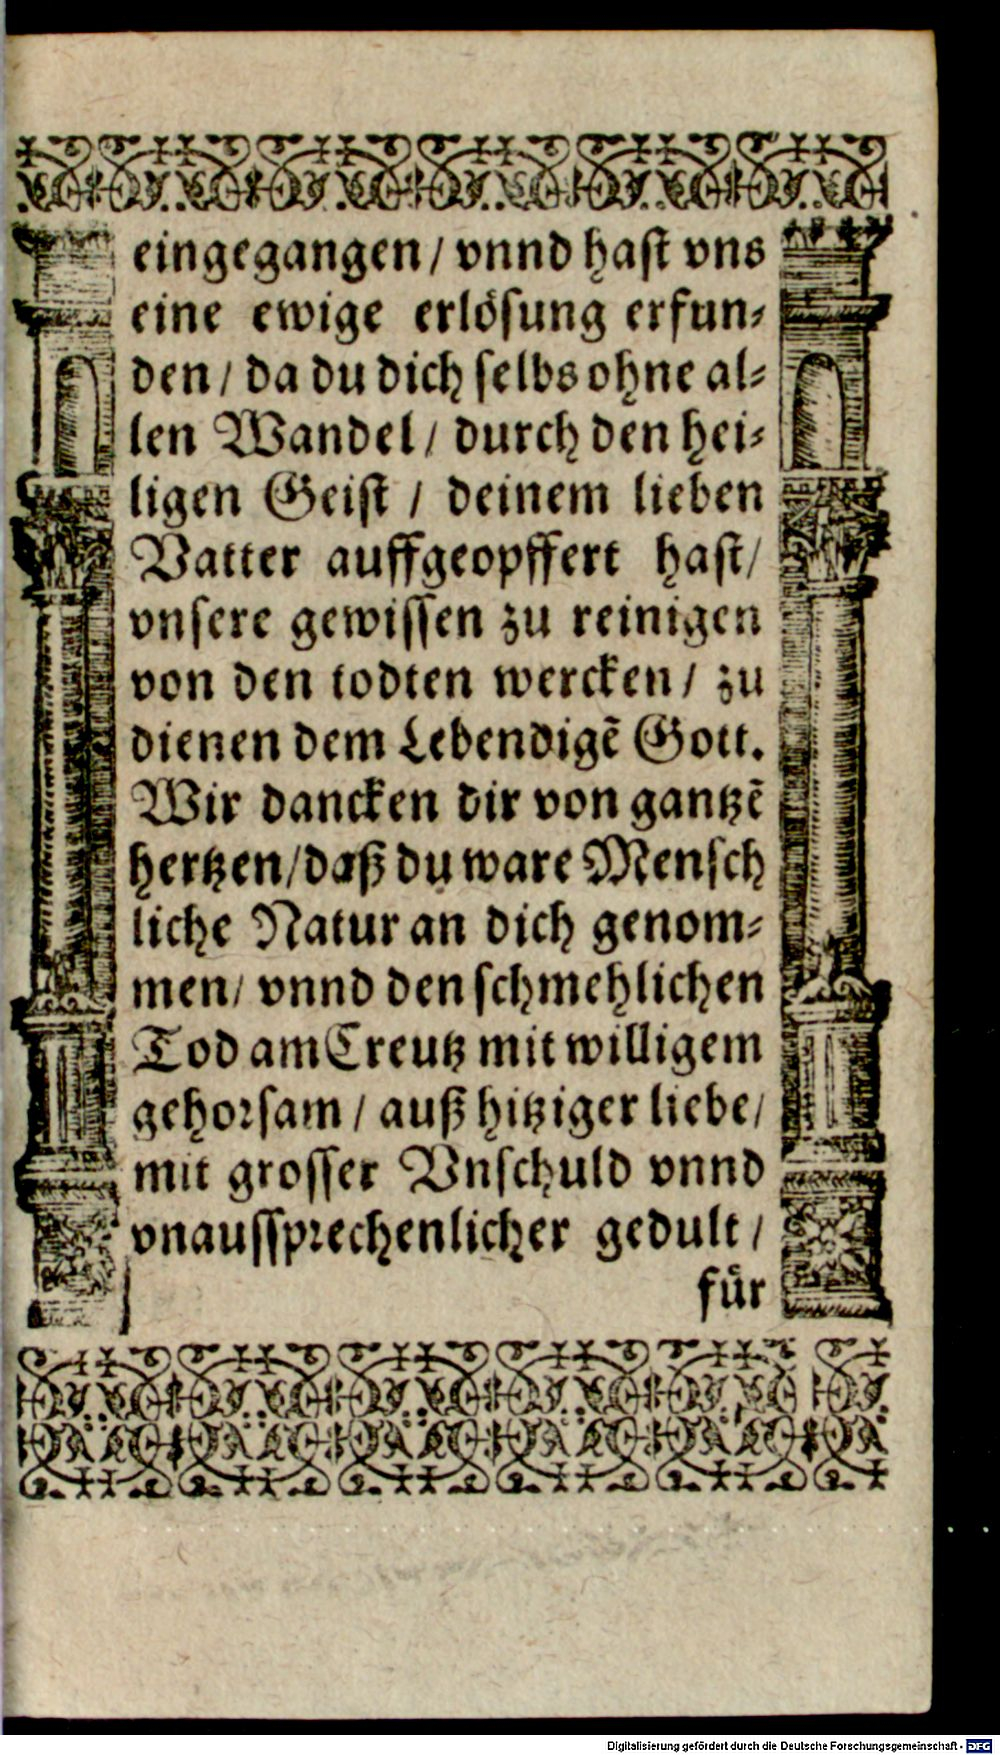 eingegangen / vnnd haſt vns
eine ewige erlöſung erfun⸗
den / da du dich ſelbs ohne al⸗
len Wandel / durch den hei⸗
ligen Geiſt / deinem lieben
Vatter auffgeopffert haſt /
vnſere gewiſſen zu reinigen
von den todten wercken / zu
dienen dem Lebendigẽ Gott.
Wir dancken dir von gantzẽ
hertzen / daß du ware Menſch
liche Natur an dich genom⸗
men / vnnd den ſchmehlichen
Tod am Creutz mit willigem
gehorſam / auß hitziger liebe /
mit groſſer Vnſchuld vnnd
vnausſprechenlicher gedult /
fuͤr
Digitalisierung gefördert durch die Deutsche Forschungsgemeinschaft - DFG